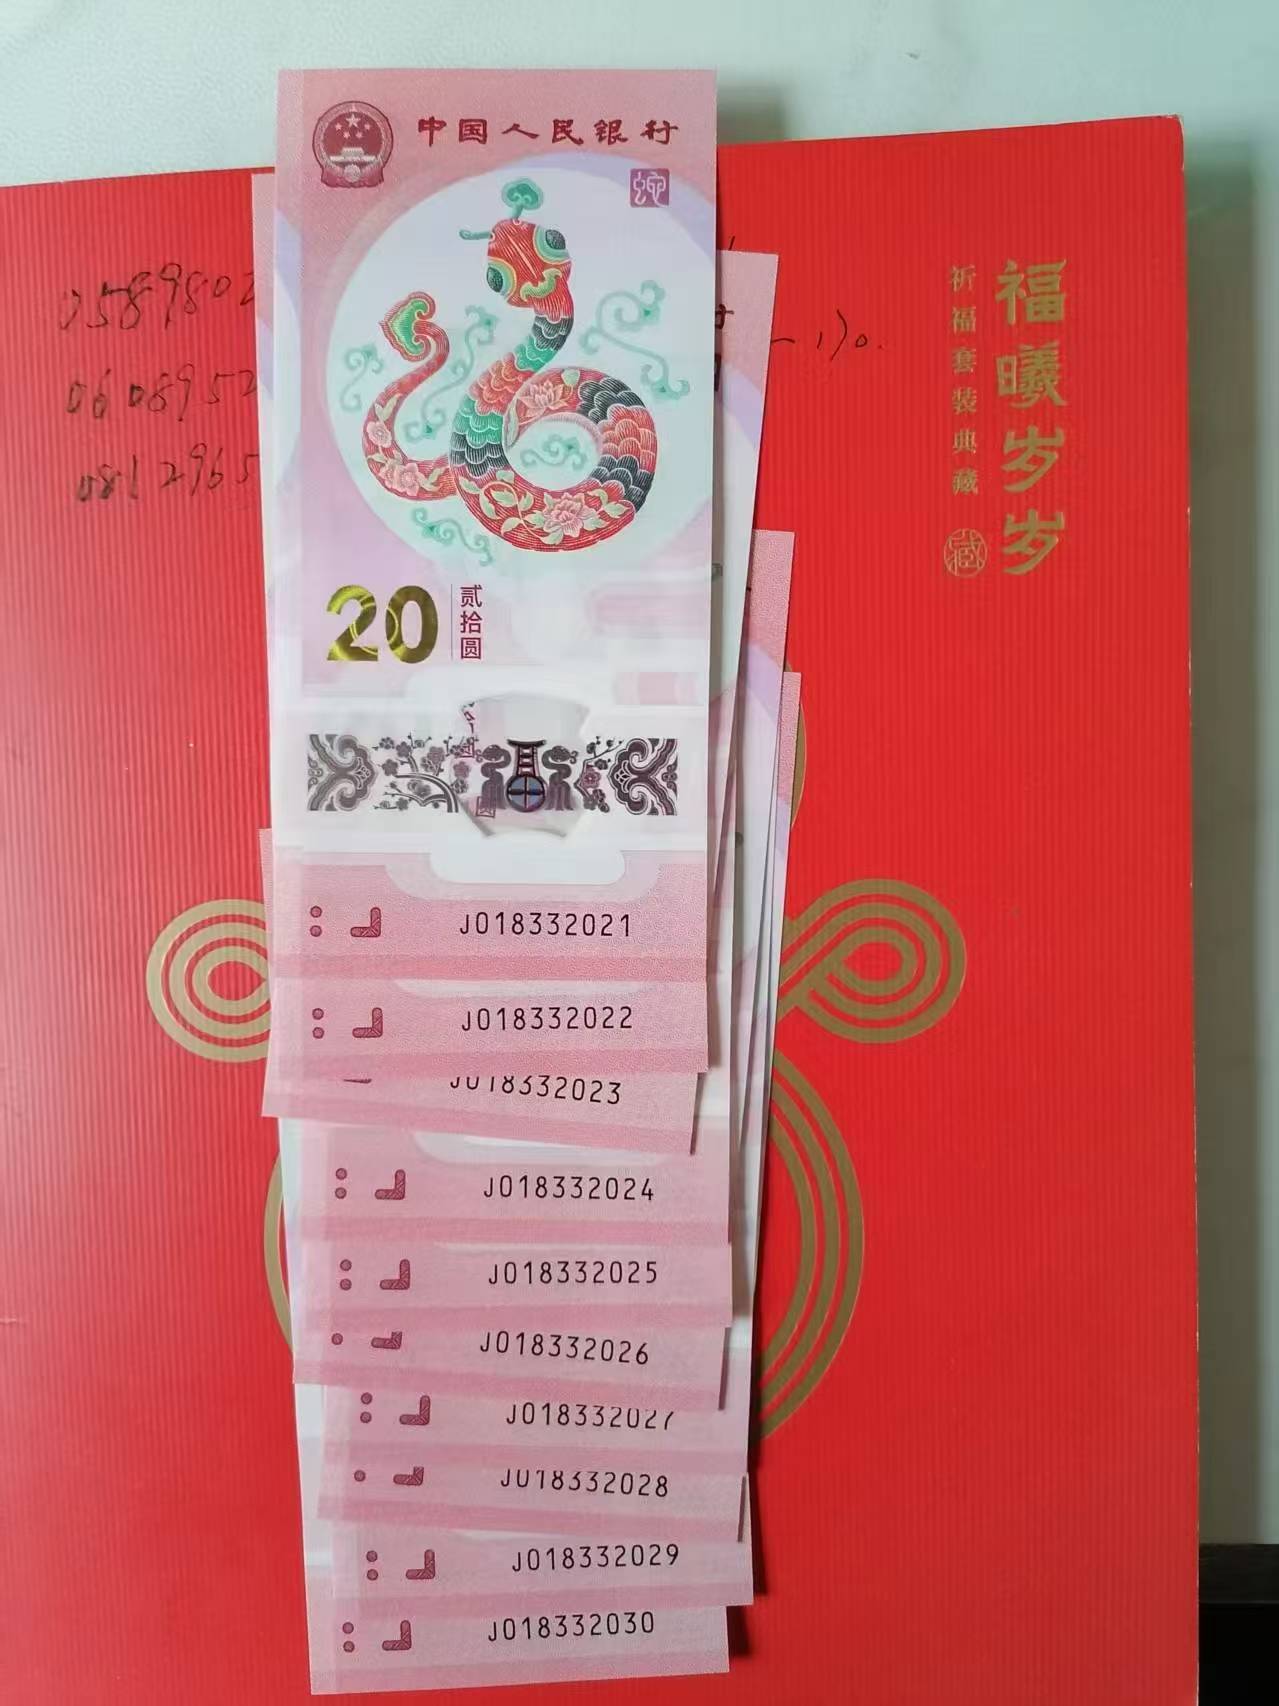 中国人民银行
蛇
20
贰拾圆
J018332021
J018332022
J018332023
J018332024
J018332025
J018332026
J018332027
J018332028
J018332029
J018332030
福曦岁岁
祈福套装典藏
藏
058980
0608952
0812965